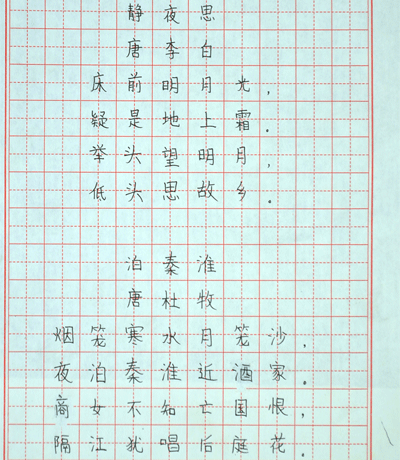 静夜思
唐李白
床前明月光，
疑是地上霜．
举头望明月，
低头思故乡．
泊秦淮
唐杜牧
烟笼寒水月笼沙．
夜泊秦淮近酒家．
商女不知亡国恨，
隔江犹唱后庭花．